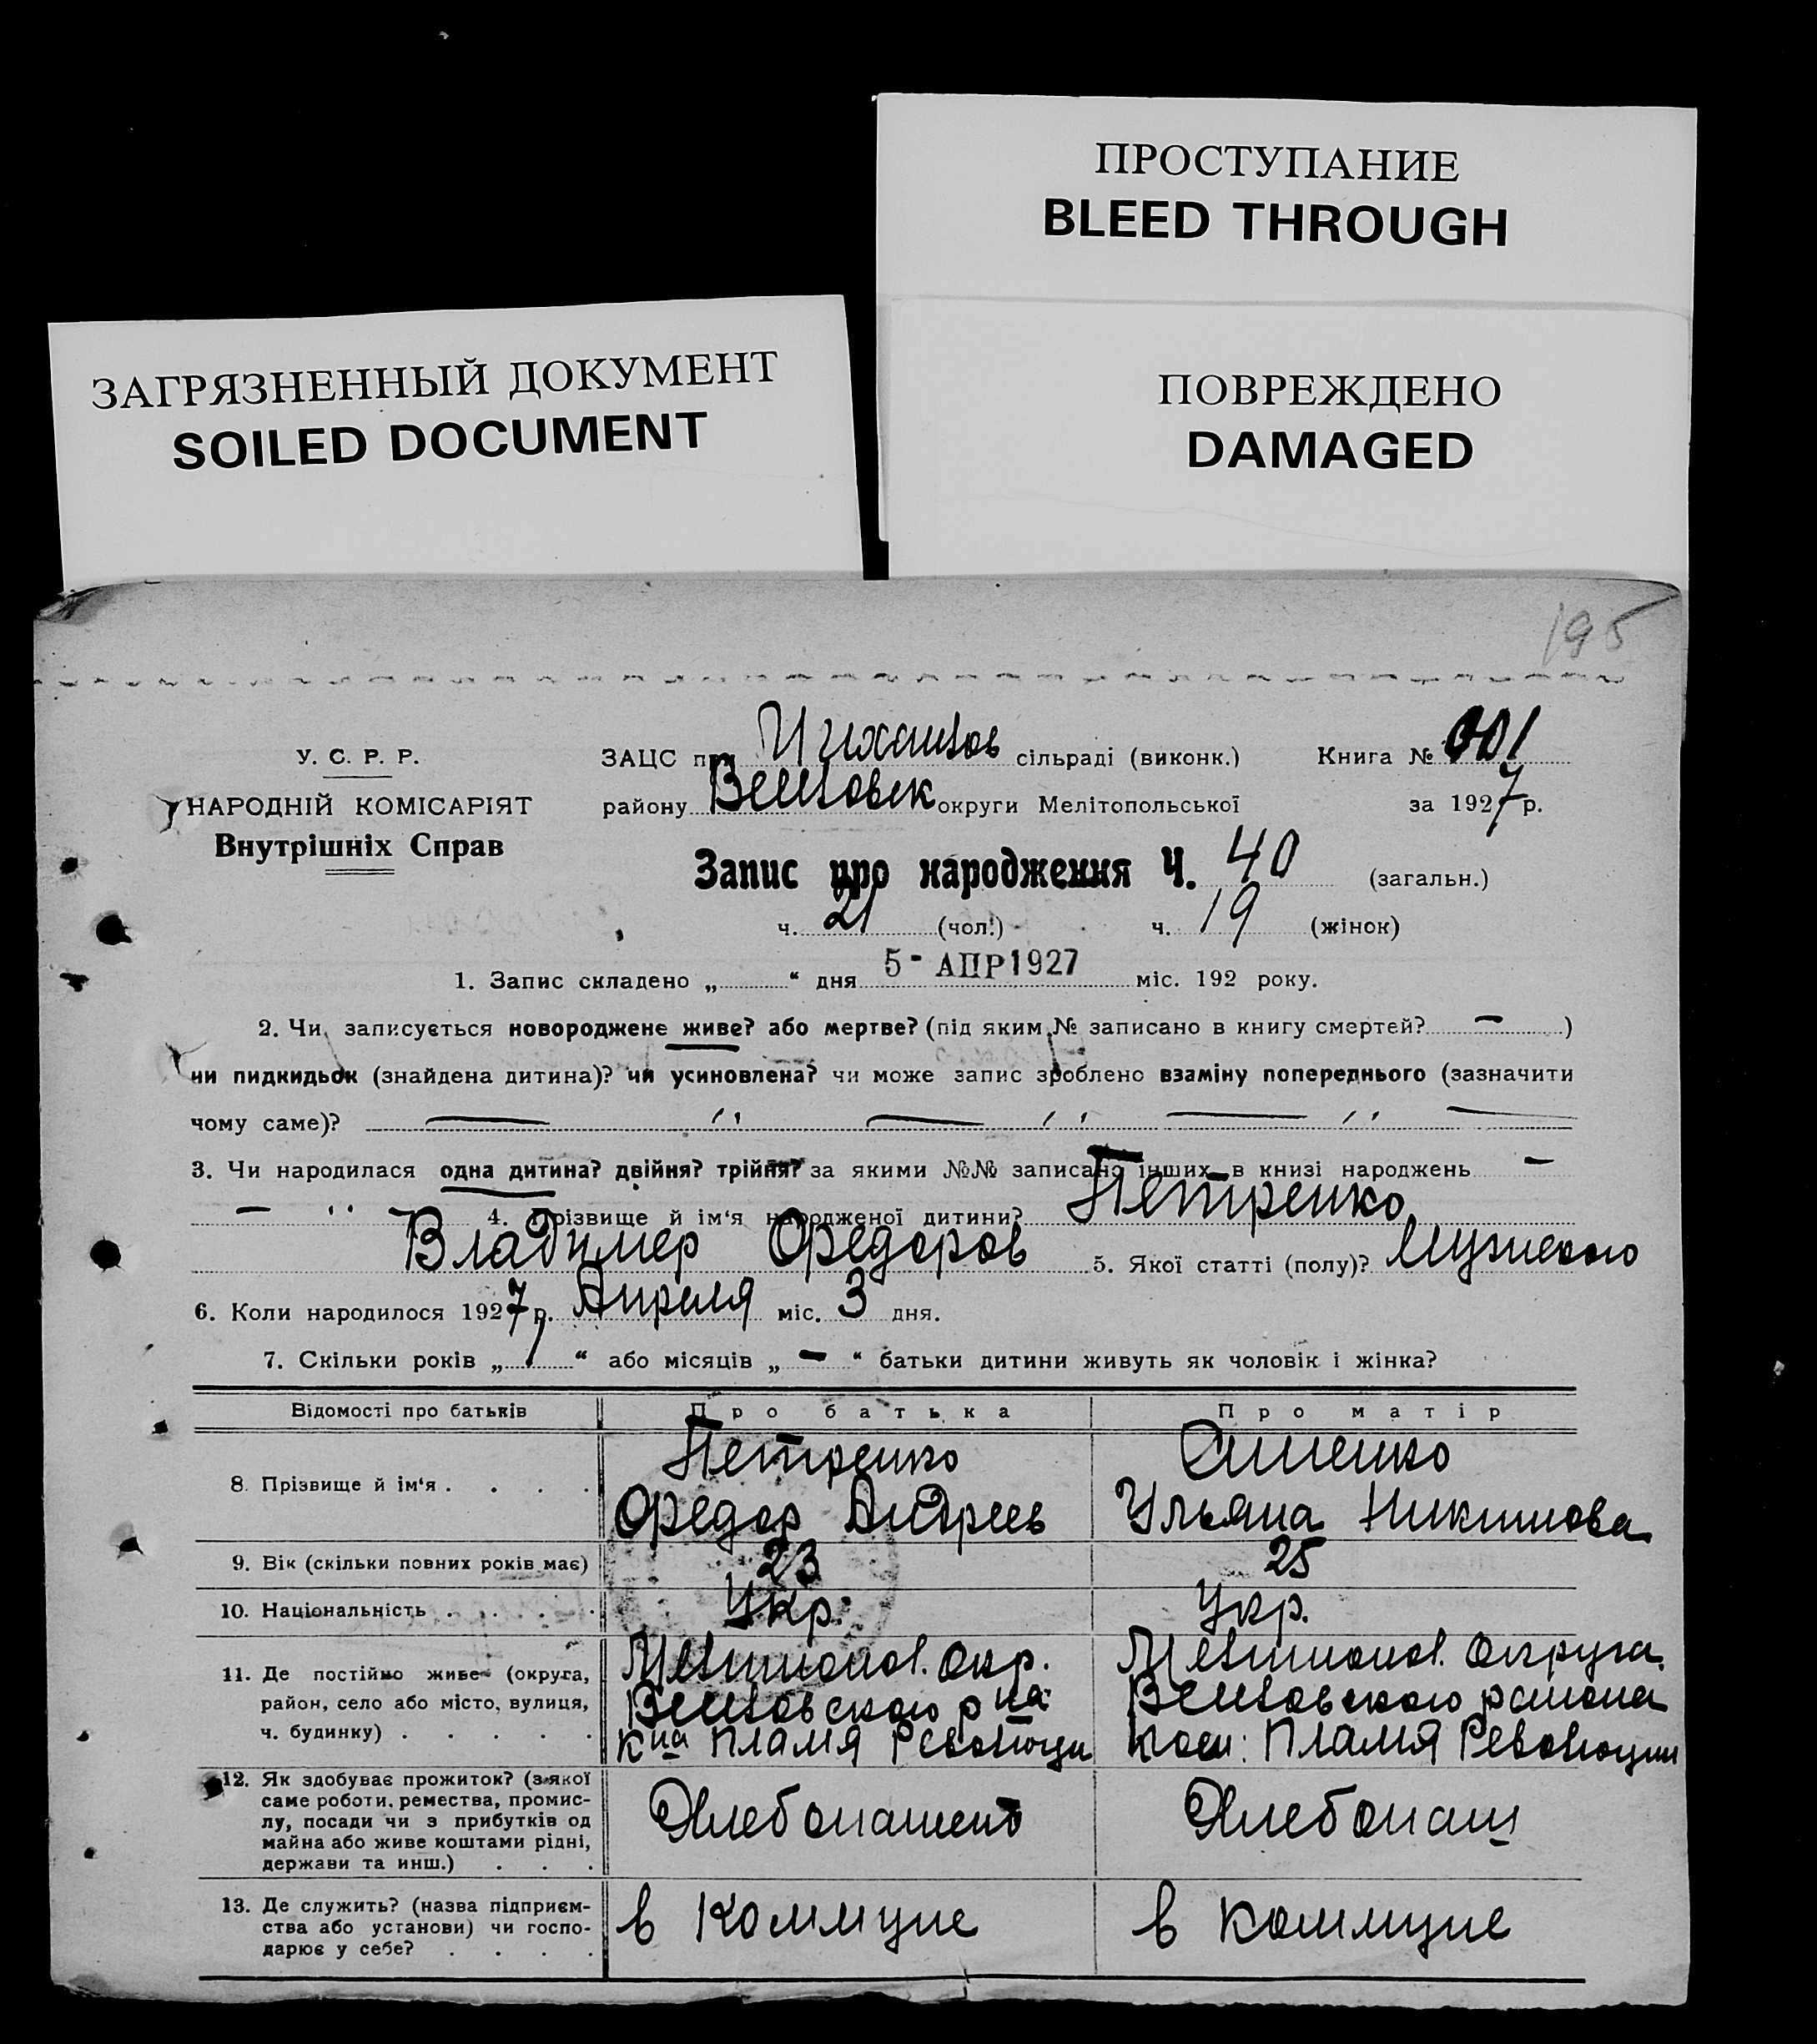 ПРОСТУПАНИЕ
BLEED THROUGH
ЗАГРЯЗНЕННЫЙ ДОКУМЕНТ
SOILED DOCUMENT
ПОВРЕЖДЕНО
DAMAGED
195
У. С. Р. Р.
НАРОДНІЙ КОМІСАРІЯТ
Внутрішніх Справ
ЗАЦС при сільраді (виконк.) Книга № 001
району округи Мелітопольської за 1927 р.
Запис про народження Ч. 40 (загальн.)
ч. 21 (чол.) ч. 19 (жінок)
1. Запис складено „ “ дня 5 - АПР 1927 міс. 192 року.
2. Чи записується новороджене живе? або мертве? (під яким № записано в книгу смертей? — )
чи пидкидьок (знайдена дитина)? чи усиновлена? чи може запис зроблено взаміну попереднього (зазначити
чому саме)? — " — " — " —
3. Чи народилася одна дитина? двійня? трійня? за якими №№ записано інших в книзі народжень —
— " 4. Прізвище й ім‘я народженої дитини? Петренко
Владимер Федоров 5. Якої статті (полу)? Мужского
6. Коли народилося 1927 р. Апреля міс. 3 дня.
7. Скільки років „ 1 “ або місяців „ — “ батьки дитини живуть як чоловік і жінка?
Відомості про батьків Про батька Про матір
8. Прізвище й ім‘я . . . . Петренко
Федор Андреев Ульяна
9. Вік (скільки повних років має) 23 25
10. Національність . . . . Укр. Укр.
11. Де постійно живе (округа,
район, село або місто, вулиця,
ч. будинку) . . . . .
Мелитопол. окр.
р на
к на Пламя Революци
Мелитопол. округа.
района
ком: Пламя Революции
12. Як здобуває прожиток? (з якої
саме роботи, ремества, промис-
лу, посади чи з прибутків од
майна або живе коштами рідні,
держави та инш.) . . .
Хлебопашено
Хлебопаш
13. Де служить? (назва підприєм-
ства або установи) чи госпо-
дарює у себе? . . . .
в Коммуне
в коммуне